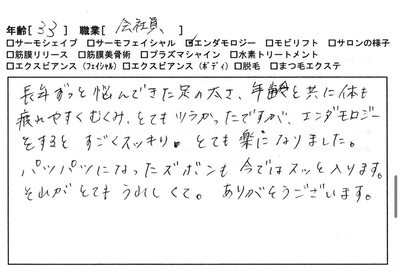 年齢[ 33 ] 職業[ 会社員 ]
□サーモシェイプ □サーモフェイシャル ☑エンダモロジー □モビリフト □サロンの様子
□筋膜リリース □筋膜美骨術 □プラズマシャイン □水素トリートメント
□エクスピアンス(フェイシャル) □エクスピアンス(ボディ) □脱毛 □まつ毛エクステ
長年ずっと悩んできた足の太さ、年齢と共に体も
疲れやすくむくみ、とてもツラかったですが、エンダモロジー
をすると すごくスッキリ。とても楽になりました。
パツパツになったズボンも 今ではスッと入ります。
それがとてもうれしくて。 ありがとうございます。